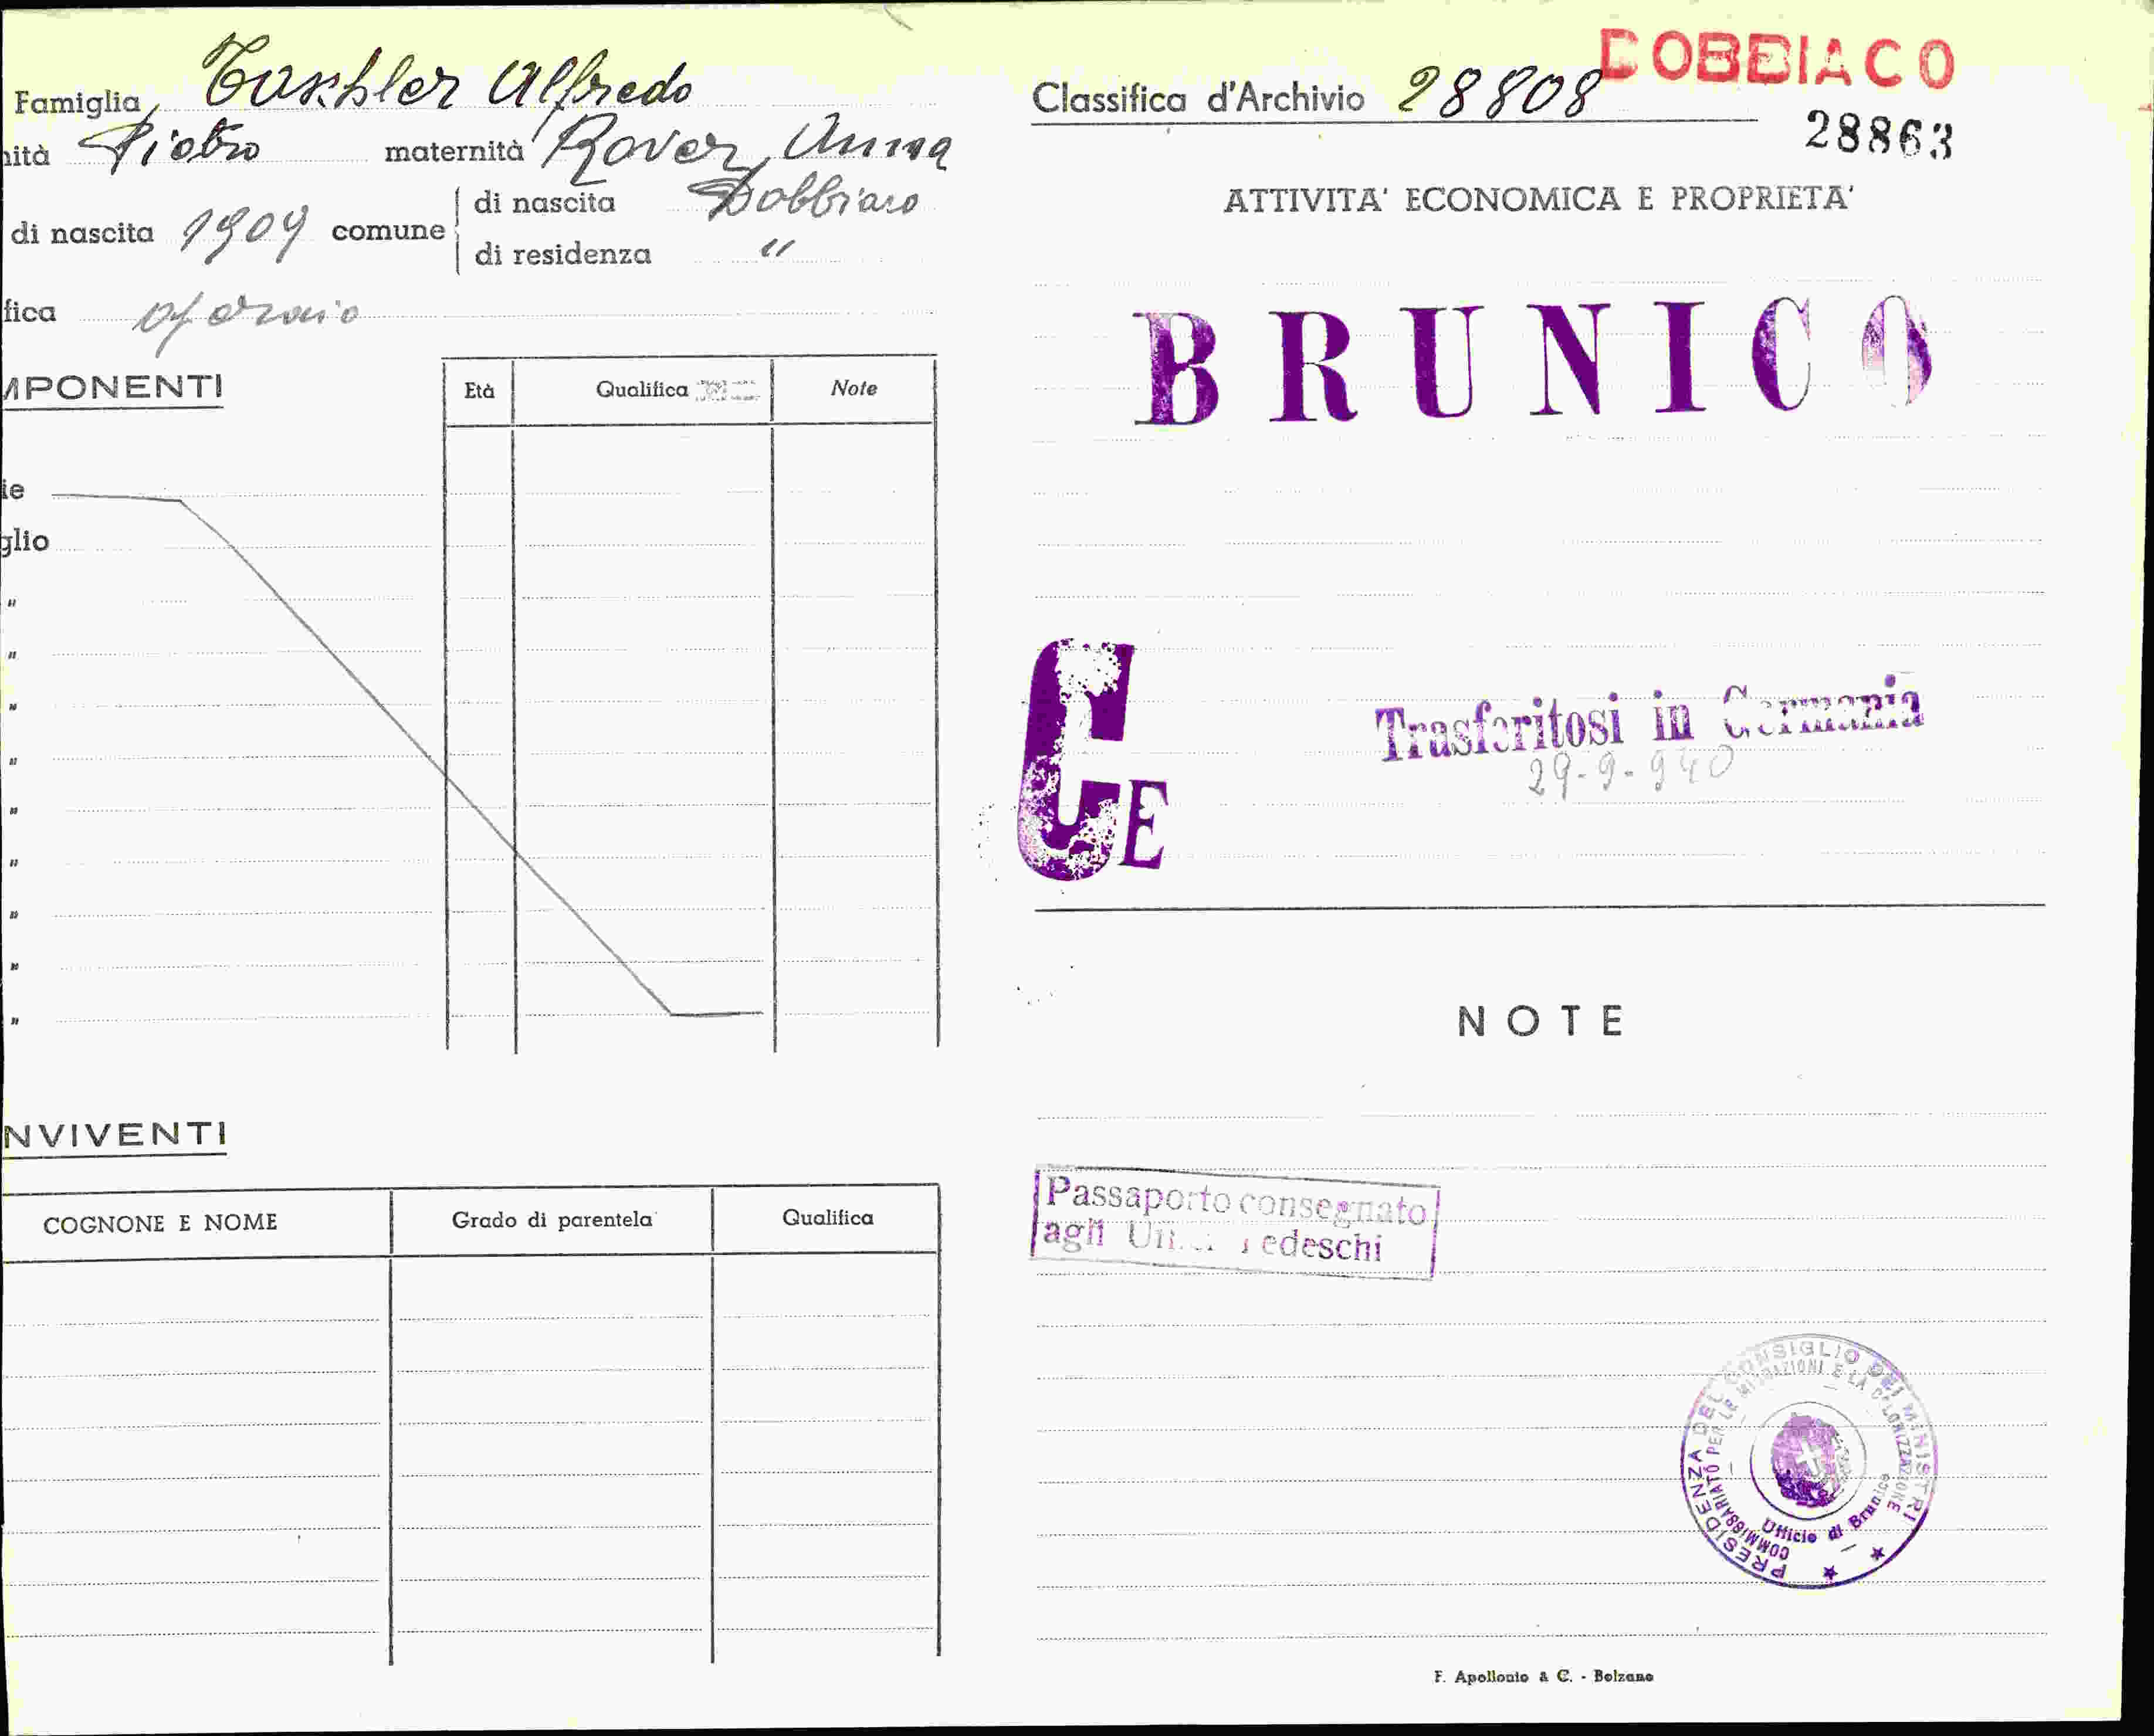 Famiglia Taschler Alfredo
ità Pietro maternità Rover Anna
di nascita 1909 comune di nascita Dobbiaco
di residenza "
fica operaio
MPONENTI
Età Qualifica Note
ie
glio
"
"
"
"
"
"
"
"
"
NVIVENTI
COGNONE E NOME Grado di parentela Qualifica
DOBBIACO
Classifica d'Archivio 28808
28863
ATTIVITA' ECONOMICA E PROPRIETA'
BRUNICO
G E
Trasferitosi in Germania
29-9-940
NOTE
Passaporto consegnato
agli Tedeschi
PRESIDENZA DEL CONSIGLIO DEI MINISTRI
COMMISSARIATO PER LE MIGRAZIONI E LA COLONIZZAZIONE
Ufficio di Brunico
F. Apollonio & C. - Bolzano